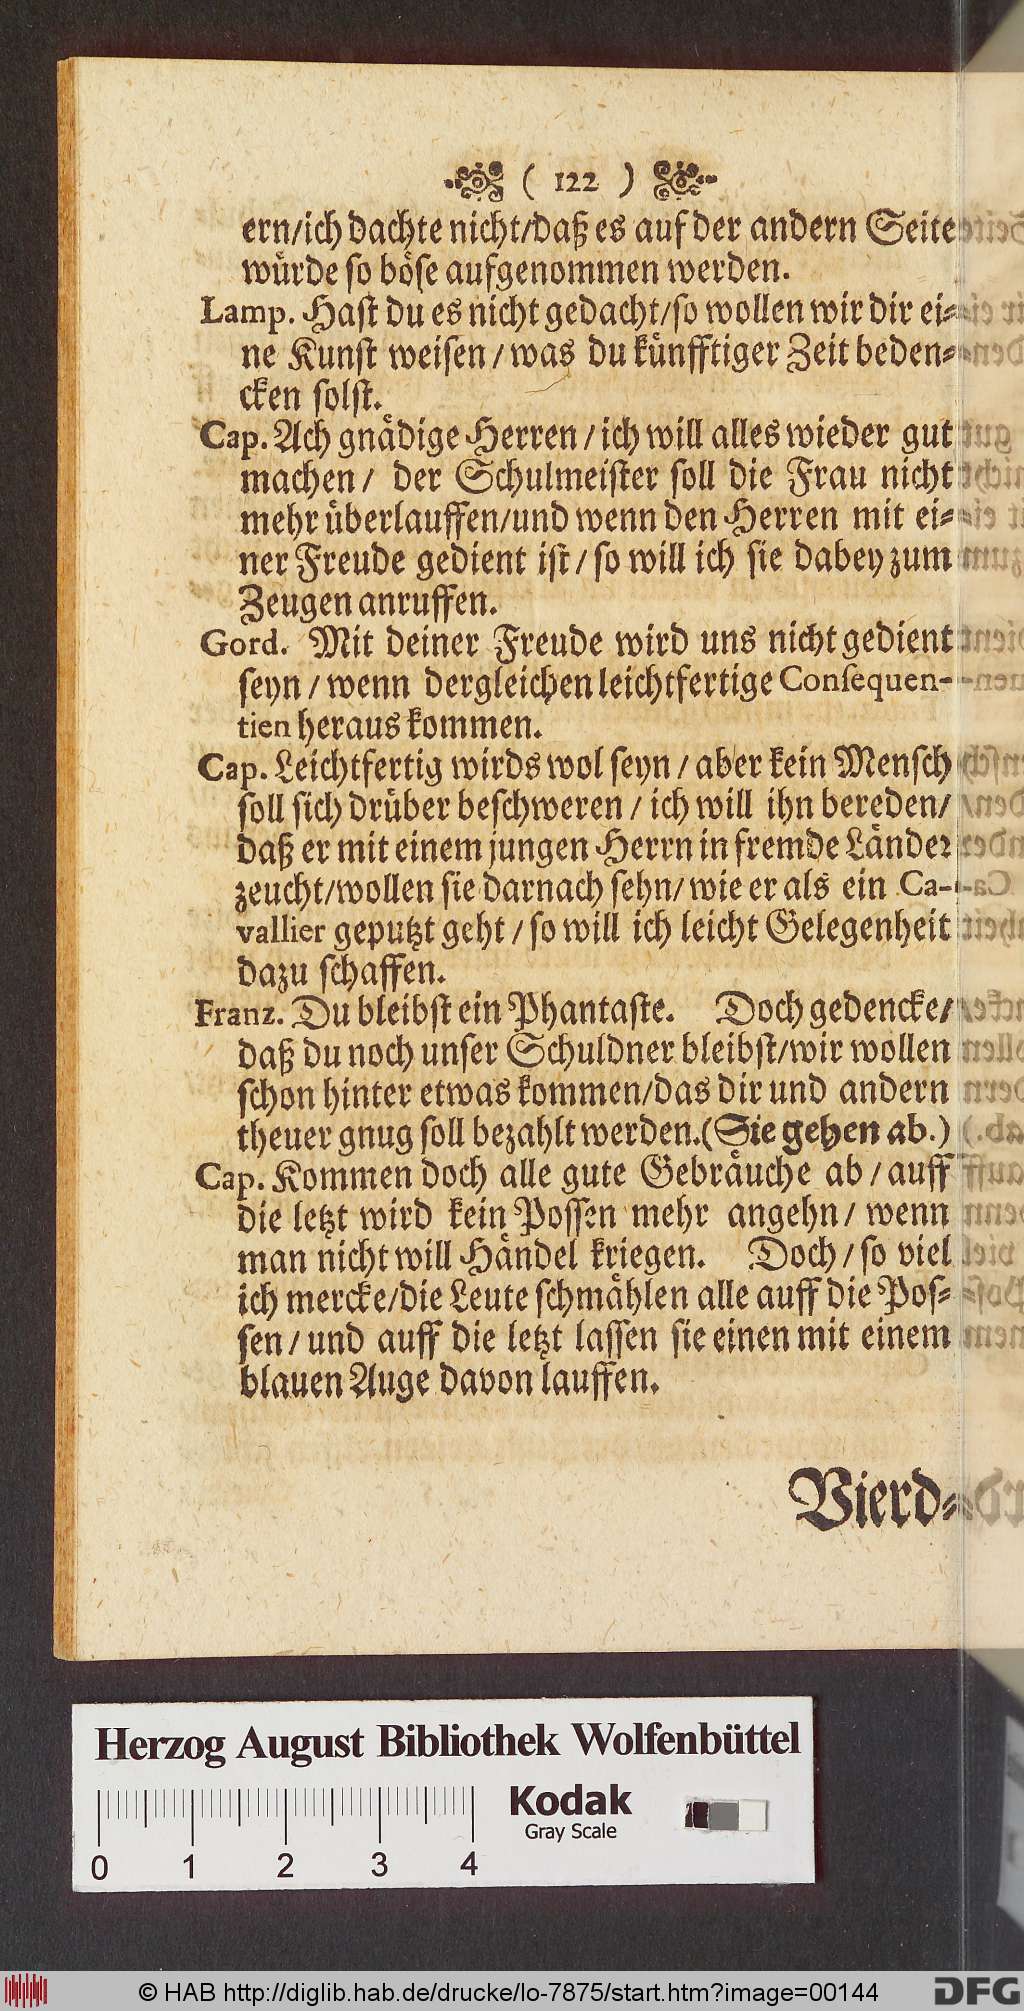 ( 122 )
ern/ich dachte nicht/daß es auf der andern Seite
würde so böse aufgenommen werden.
Lamp. Hast du es nicht gedacht/so wollen wir dir ei-
ne Kunst weisen/was du künfftiger Zeit beden-
cken solst.
Cap. Ach gnädige Herren/ich will alles wieder gut
machen/ der Schulmeister soll die Frau nicht
mehr überlauffen/und wenn den Herren mit ei-
ner Freude gedient ist/so will ich sie dabey zum
Zeugen anruffen.
Gord. Mit deiner Freude wird uns nicht gedient
seyn/wenn dergleichen leichtfertige Consequen-
tien heraus kommen.
Cap. Leichtfertig wirds wol seyn/aber kein Mensch
soll sich drüber beschweren/ich will ihn bereden/
daß er mit einem jungen Herrn in fremde Länder
zeucht/wollen sie darnach sehn/wie er als ein Ca-
vallier geputzt geht/so will ich leicht Gelegenheit
dazu schaffen.
Franz. Du bleibst ein Phantaste. Doch gedencke/
daß du noch unser Schuldner bleibst/wir wollen
schon hinter etwas kommen/das dir und andern
theuer gnug soll bezahlt werden.(Sie gehen ab.)
Cap. Kommen doch alle gute Gebräuche ab/auff
die letzt wird kein Possen mehr angehn/wenn
man nicht will Händel kriegen. Doch/so viel
ich mercke/die Leute schmählen alle auff die Pos-
sen/und auff die letzt lassen sie einen mit einem
blauen Auge davon lauffen.
Vierd-
Herzog August Bibliothek Wolfenbüttel
Kodak
Gray Scale
0 1 2 3 4
© HAB http://diglib.hab.de/drucke/lo-7875/start.htm?image=00144
DFG